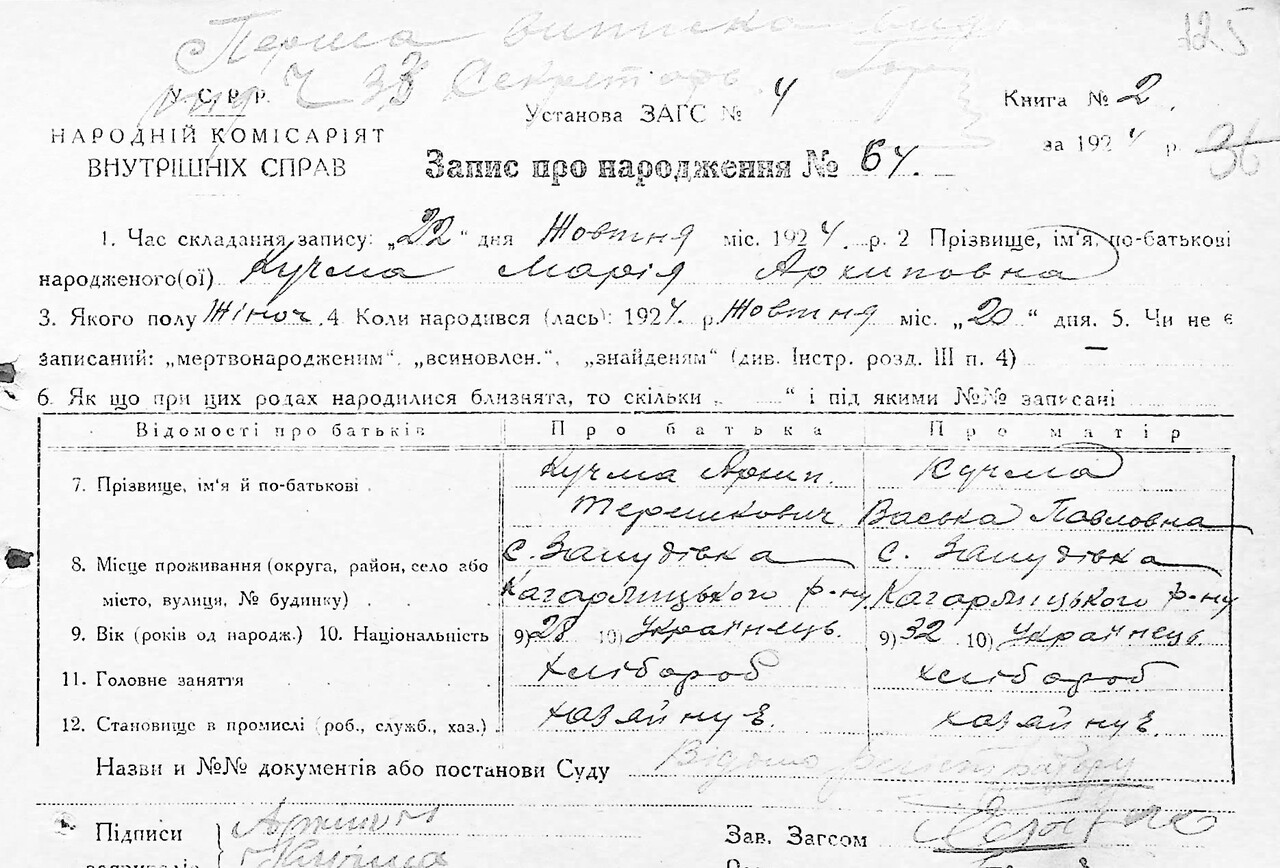 Перша виписка
Ч 33 Секретарь
125
У.С.Р.Р.
НАРОДНІЙ КОМІСАРІЯТ
ВНУТРІШНІХ СПРАВ
Установа ЗАГС № 4
Книга № 2.
за 1924 р. 36
Запис про народження № 64.
1. Час складання запису: „22“ дня Жовтня міс. 1924. р. 2 Прізвище, ім'я, по-батькові
народженого(ої) Кучма Марія Архиповна
3. Якого полу Жіноч. 4. Коли народився (лась): 1924. р. Жовтня міс. „20.“ дня. 5. Чи не є
записаний: „мертвонародженим“, „всиновлен.“, „знайденям“ (див. Інстр. розд. III п. 4) —
6. Як що при цих родах народилися близнята, то скільки „ “ і під якими №№ записані
Відомості про батьків Про батька Про матір
7. Прізвище, ім'я й по-батькові Кучма Архип Терешкович Кучма Васька Павловна
8. Місце проживання (округа, район, село або с. Зам с. Зам
місто, вулиця, № будинку) Кагарлицького р-ну Кагарлицького р-ну
9. Вік (років од народж.) 10. Національність 9) 28 10) Українець. 9) 32 10) Українець.
11. Головне заняття хлібороб хлібороб
12. Становище в промислі (роб., служб., хаз.) хазяйнує. хазяйнує.
Назви и №№ документів або постанови Суду Відомо
Підписи
Зав. Загсом